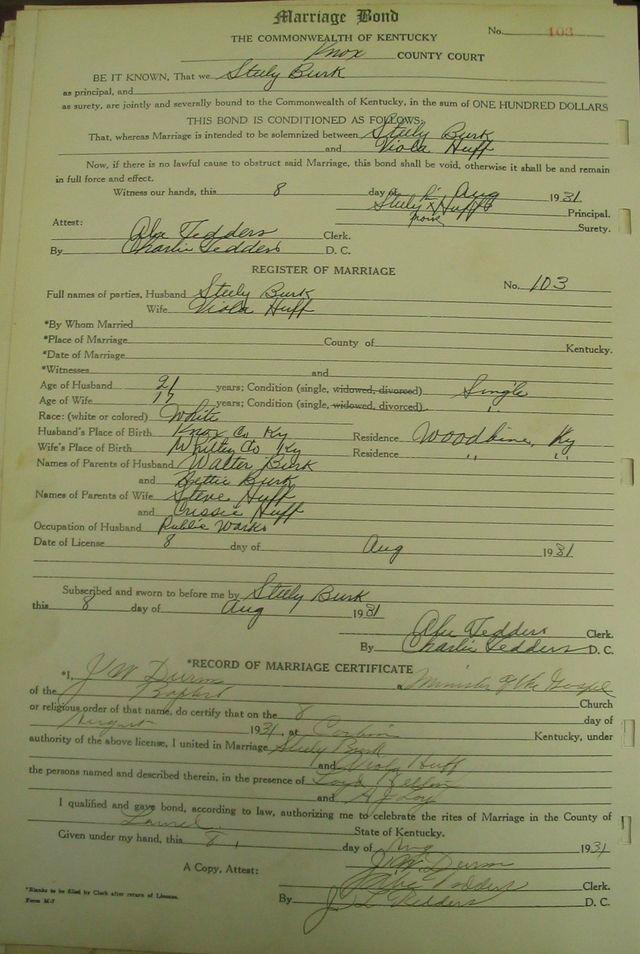 Marriage Bond
THE COMMONWEALTH OF KENTUCKY
No. 103
Knox COUNTY COURT
BE IT KNOWN, That we Steely Burk
as principal, and
as surety, are jointly and severally bound to the Commonwealth of Kentucky, in the sum of ONE HUNDRED DOLLARS
THIS BOND IS CONDITIONED AS FOLLOWS:
That, whereas Marriage is intended to be solemnized between Steely Burk
and Viola Huff
Now, if there is no lawful cause to obstruct said Marriage, this bond shall be void, otherwise it shall be and remain
in full force and effect.
Witness our hands, this 8 day of Aug 1931
Steely x Huff Principal.
Surety.
Attest:
Tedders Clerk.
By Charlie Tedders D. C.
REGISTER OF MARRIAGE
No. 103
Full names of parties, Husband Steely Burk
Wife Viola Huff
*By Whom Married
*Place of Marriage County of Kentucky.
*Date of Marriage
*Witnesses and
Age of Husband 21 years; Condition (single, widowed, divorced) Single
Age of Wife 17 years; Condition (single, widowed, divorced). "
Race: (white or colored) White
Husband's Place of Birth Knox Co Ky Residence Woodbine, Ky
Wife's Place of Birth Whitley Co Ky Residence " "
Names of Parents of Husband Walter Burk
and Bettie Burk
Names of Parents of Wife Steve Huff
and Crissie Huff
Occupation of Husband Public Works
Date of License 8 day of Aug 1931
Subscribed and sworn to before me by Steely Burk
this 8 day of Aug 1931
Tedders Clerk.
By Charlie Tedders D. C.
*RECORD OF MARRIAGE CERTIFICATE
*I, J W Durm a Minister of the Gospel
of the Baptist Church
or religious order of that name, do certify that on the 8 day of
August 1931, at Corbin Kentucky, under
authority of the above license, I united in Marriage Steely Burk
and Viola Huff
the persons named and described therein, in the presence of
and A J
I qualified and gave bond, according to law, authorizing me to celebrate the rites of Marriage in the County of
Laurel State of Kentucky.
Given under my hand, this 8, day of Aug 1931
J W Durm
A Copy, Attest: Tedders Clerk.
By Tedders D. C.
*Blanks to be filled by Clerk after return of License.
Form M-7